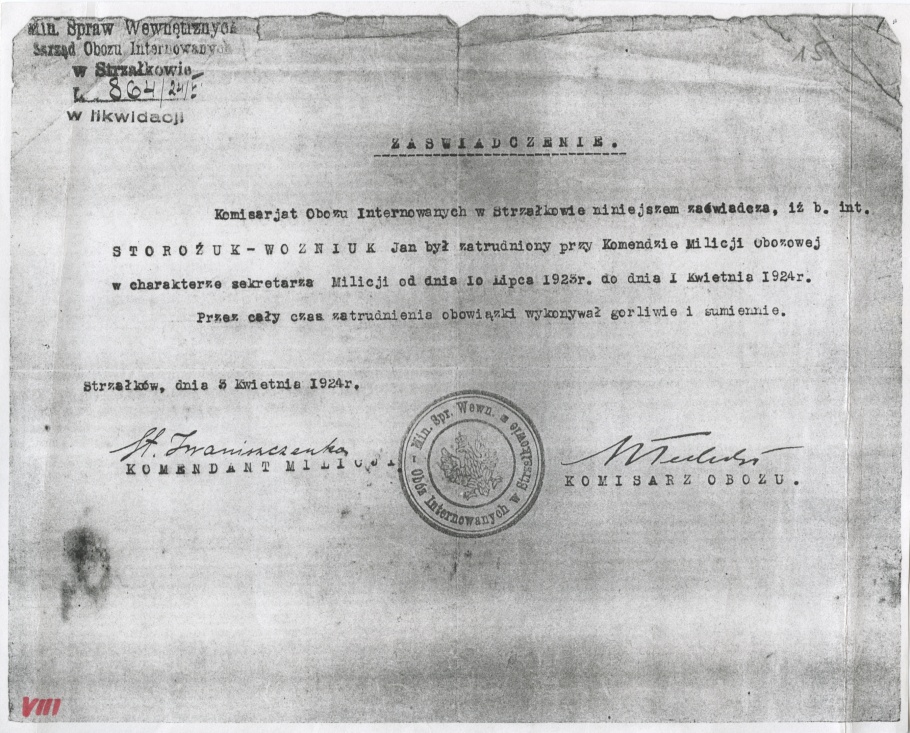 Min. Spraw Wewnętrznych
Zarząd Obozu Internowanych
w Strzałkowie
L. 864/24/
w likwidacji
15
ZAŚWIADCZENIE.
Komisarjat Obozu Internowanych w Strzałkowie niniejszem zaświadcza, iż b. int.
STOROŹUK-WOZNIUK Jan był zatrudniony przy Komendzie Milicji Obozowej
w charakterze sekretarza Milicji od dnia Io Lipca 1923r. do dnia I Kwietnia I924r.
Przez cały czas zatrudnienia obowiązki wykonywał gorliwie i sumiennie.
Strzałków, dnia 3 Kwietnia I924r.
St. Iwaniszczenko
KOMENDANT MILICJI
Min. Spr. Wewn.
Obóz Internowanych w Strzałkowie
KOMISARZ OBOZU.
VIII